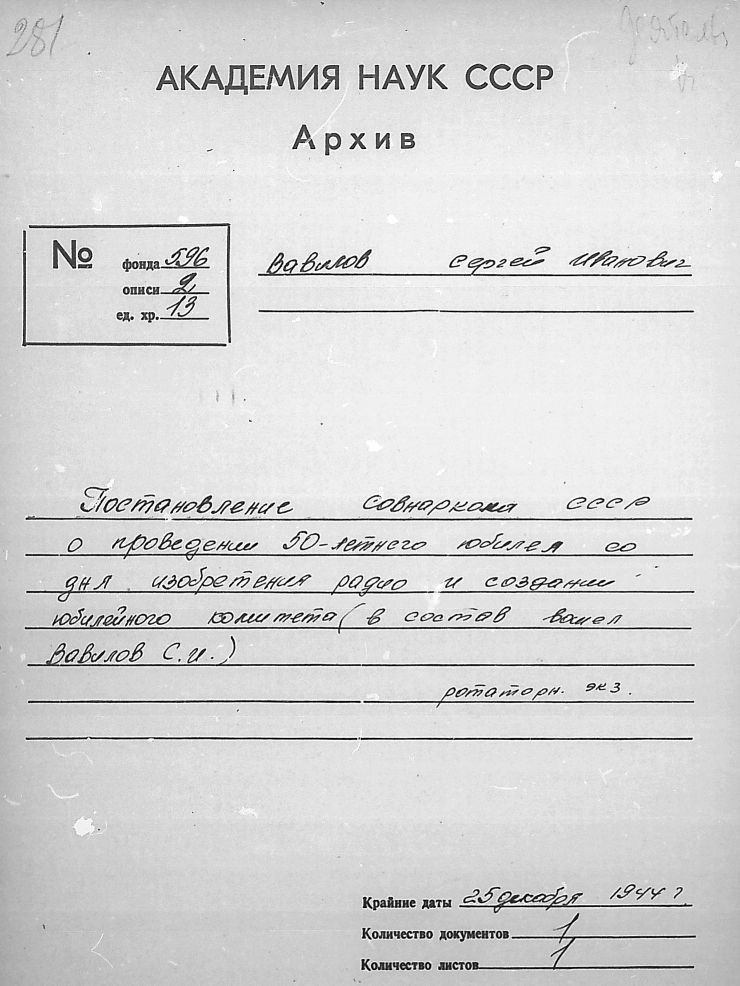 281
АКАДЕМИЯ НАУК СССР
Архив
№
фонда 596
описи 2
ед. хр. 13
Вавилов Сергей Иванович
Постановление совнаркома СССР
о проведении 50-летнего юбилея со
дня изобретения радио и создании
юбилейного комитета (в состав вошел
Вавилов С.И.)
ротаторн. экз.
Крайние даты 25 декабря 1944 г.
Количество документов 1
Количество листов 1